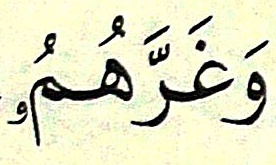 وَغَرَّهُمُۥ